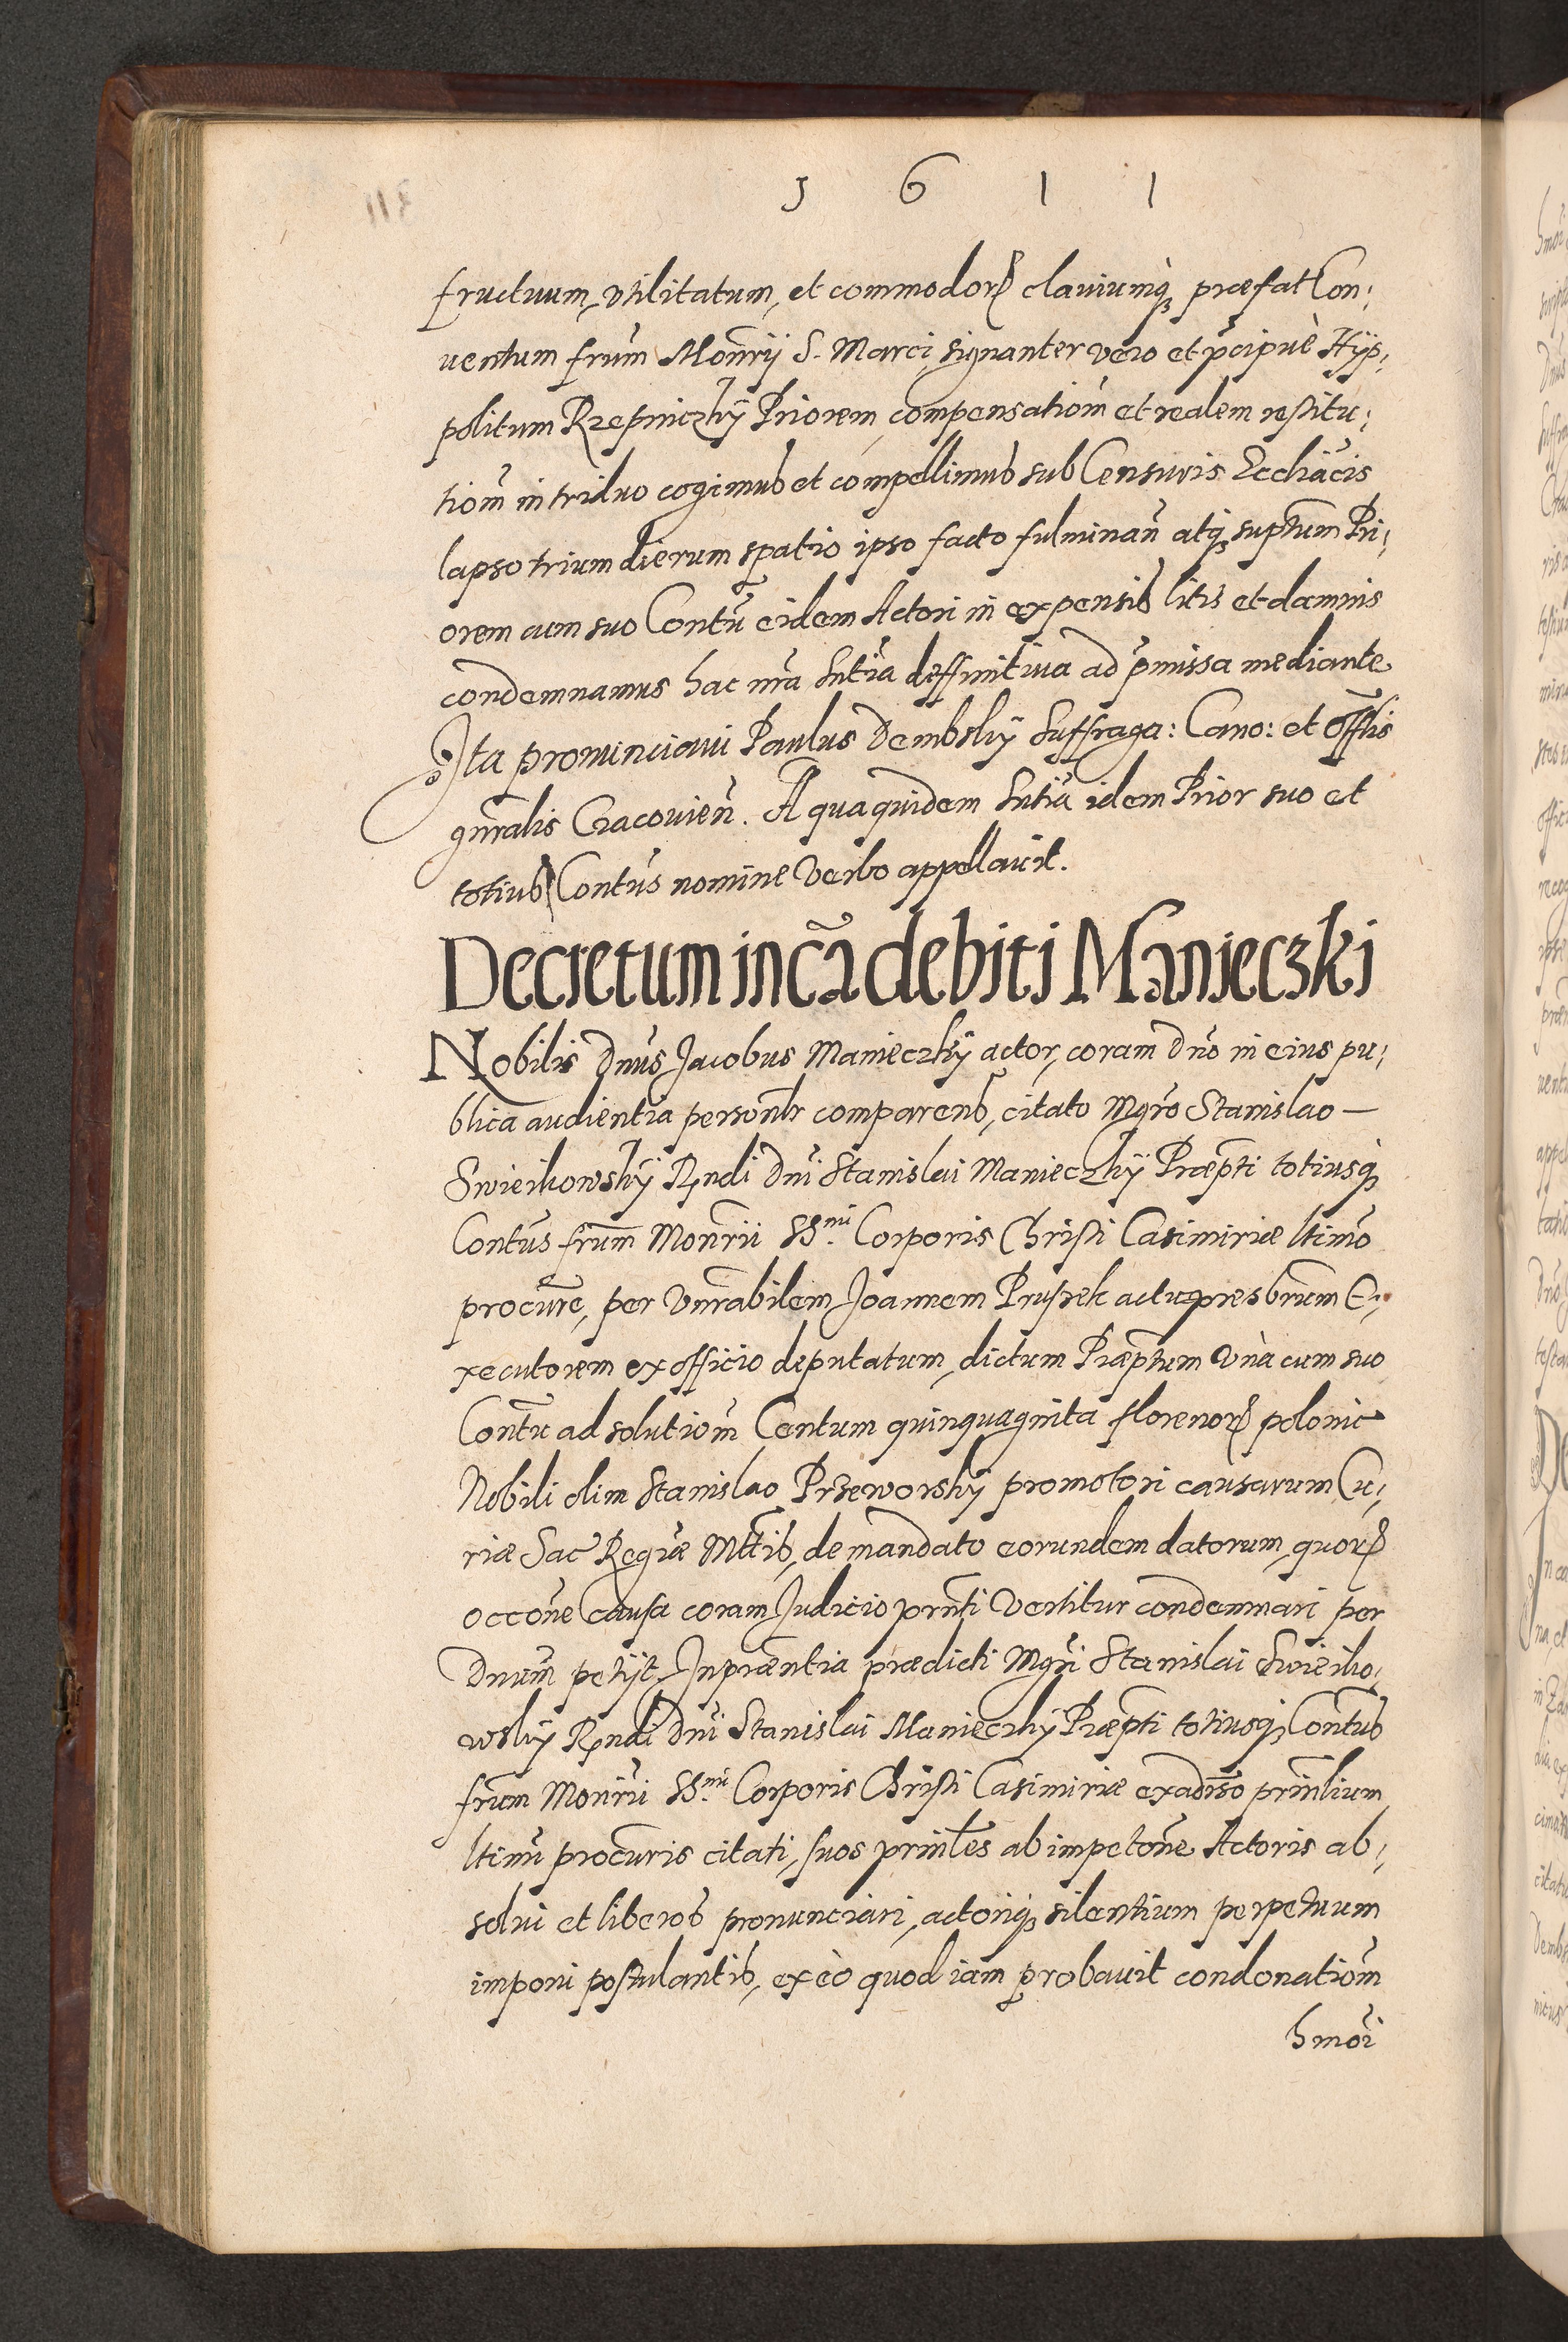 1611
fructuum, vtilitatum, et commodor clauiumq3 præfat Con;
uentum frum̃ Monr̃ij S. Marci, signanter vero et p̃cipuè Hyp;
politum Rzepniczky Priorem, compensatiom̃ et realem restitu;
tiom̃ in triduo cogimus et compellimus sub Censuris Eccliãcis
lapso trium dierum spatio ipso facto fulminañ atq3 suptum̃ Pri;
orem cum suo Contũ eidem Actori in expensis litis et damnis
condemnamus hac nr̃a Sntĩa deffinitiua ad p̃missa mediante
Ita pronunciaui Paulus Dembsky Suffraga: Cano: et Offlĩs
gnr̃alis Cracouieñ. A qua quidem Sntĩa idem Prior suo et
totius Contũs nomine verbo appellauit.
Decretum in cã debiti Manieczki
Nobilis Dnũs Jacobus Manieczky actor, coram Dnõ in eius pu;
blica audientia personlr̃ comparens, citato Mgrõ Stanislao —
Swieikowsky Rndi Dnĩ Stanislai Manieczky Præpti totiusq3
Contũs frum̃ Monr̃ii SS.mi Corporis Christi Casimiriæ ltimõ
procurẽ, per vnr̃abilem Joannem Prussek actu presbrum̃ E;
xecutorem ex officio deputatum, dictum Præptum̃ vnà cum suo
Contũ ad solutiom̃ Centum quinquaginta florenor polonic
Nobili olim Stanislao Przeworsky promotori causarum Cu;
riæ Sac Regiæ Mttis, de mandato eorundem datorum, quor
occõne causa coram Judicio prnti vertitur condemnari per
Dnum̃ petijt. In præntia prædicti Mgrĩ Stanislai Swieiko;
wsky Rndi Dnĩ Stanislai Manieczky Præpti totiusq3 Contus
frum̃ Monr̃ii SS.mi Corporis Christi Casimiriæ ex adr̃so prinlium
ltimĩ procuris citati, suos prinles ab impetõne Actoris ab;
solui et liberos pronunciari, actoriq3 silentium perpetuum
imponi postulantis, ex eò quod iam probauit condonatiom̃
hmoĩ